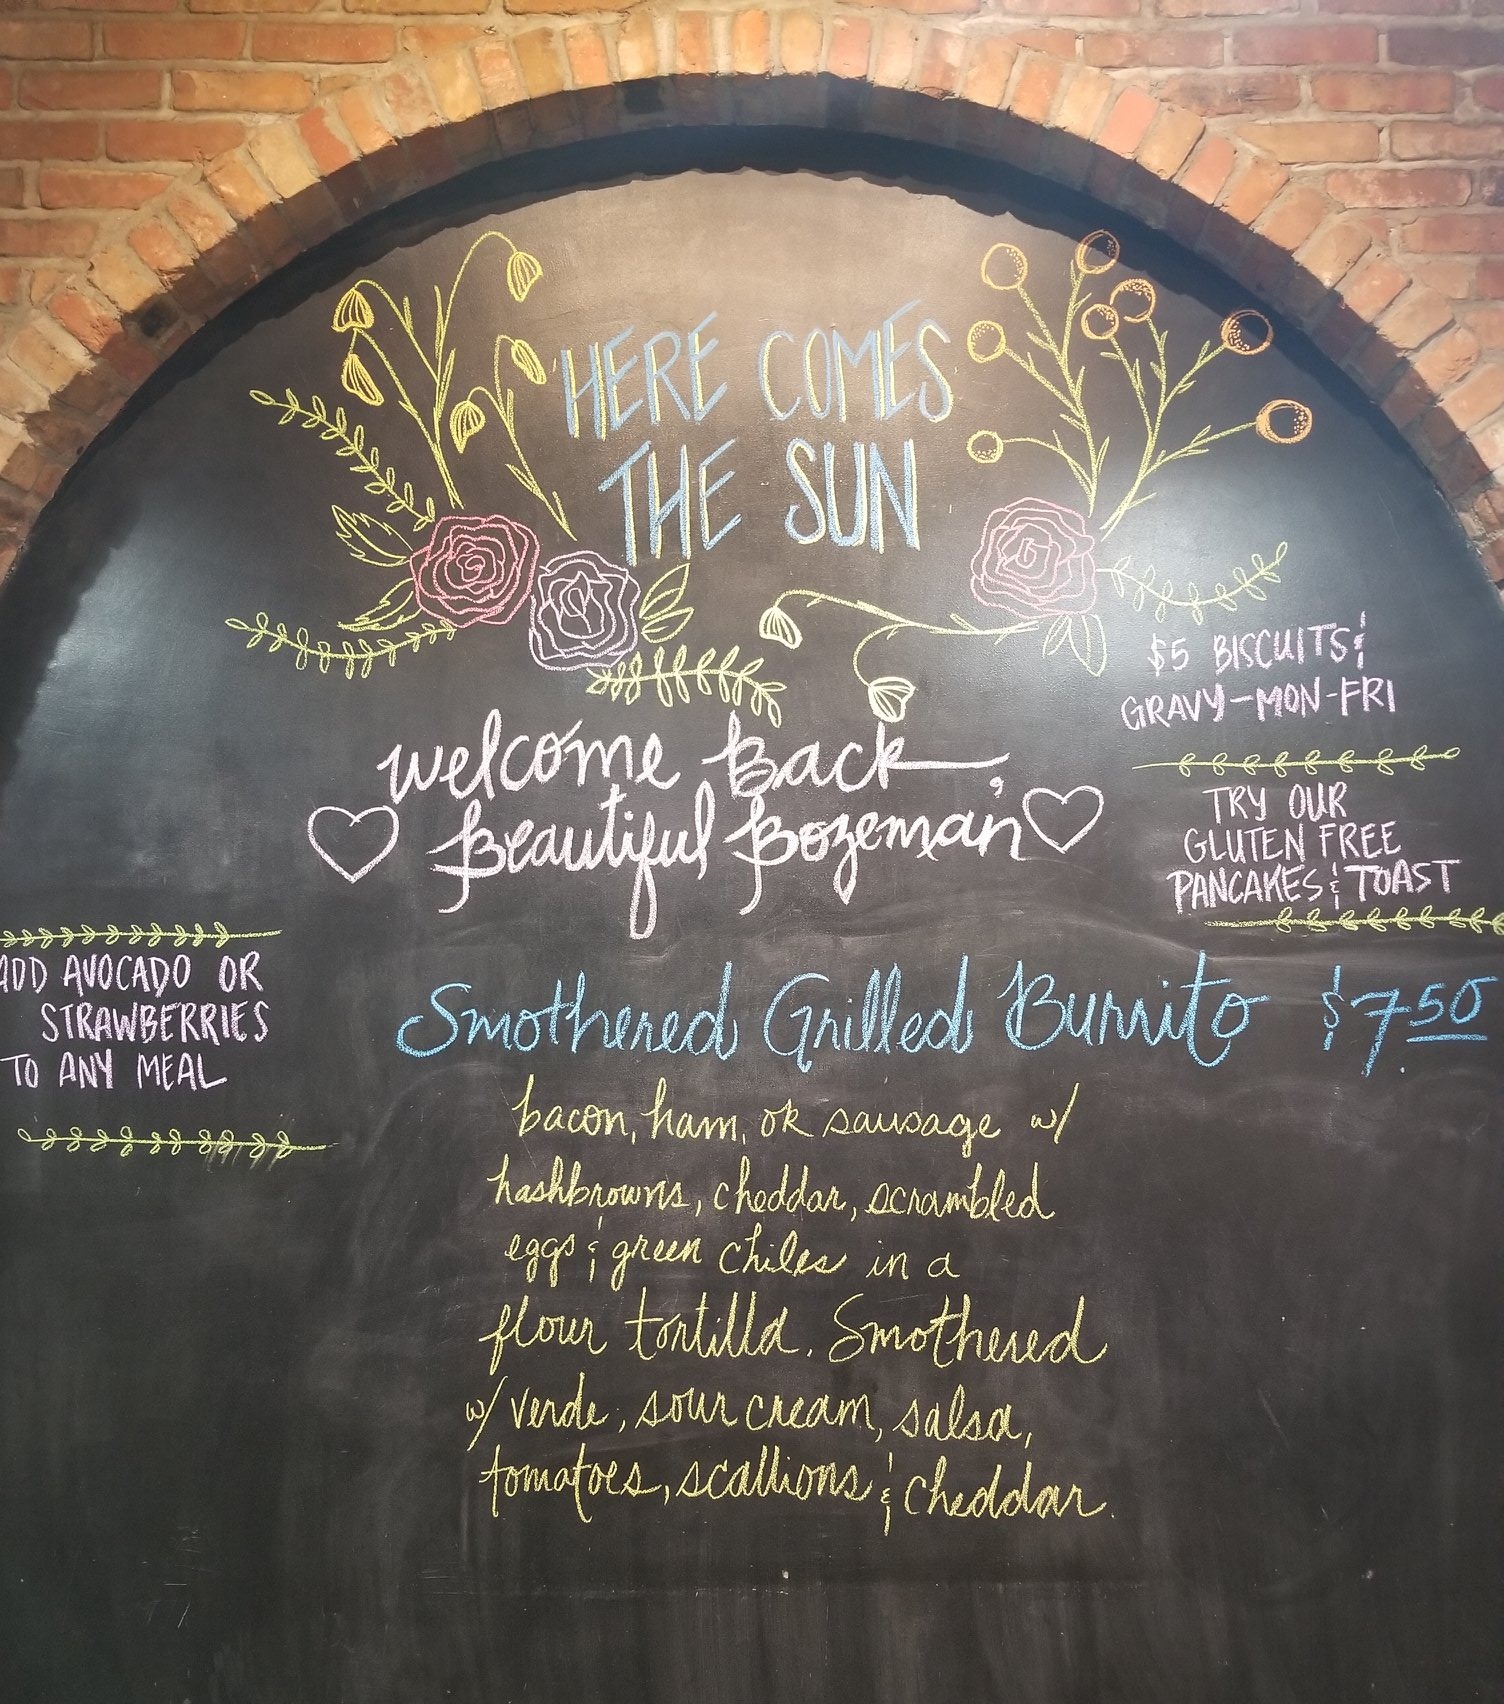 HERE COMES
THE SUN
$5 BISCUITS &
GRAVY-MON-FRI
welcome Back,
Beautiful Bozeman
TRY OUR
GLUTEN FREE
PANCAKES & TOAST
ADD AVOCADO OR
STRAWBERRIES
TO ANY MEAL
Smothered Grilled Burrito $7.50
bacon, ham, or sausage w/
hashbrowns, cheddar, scrambled
eggs & green chiles in a
flour tortilla. Smothered
w/ verde, sour cream, salsa,
tomatoes, scallions & cheddar.